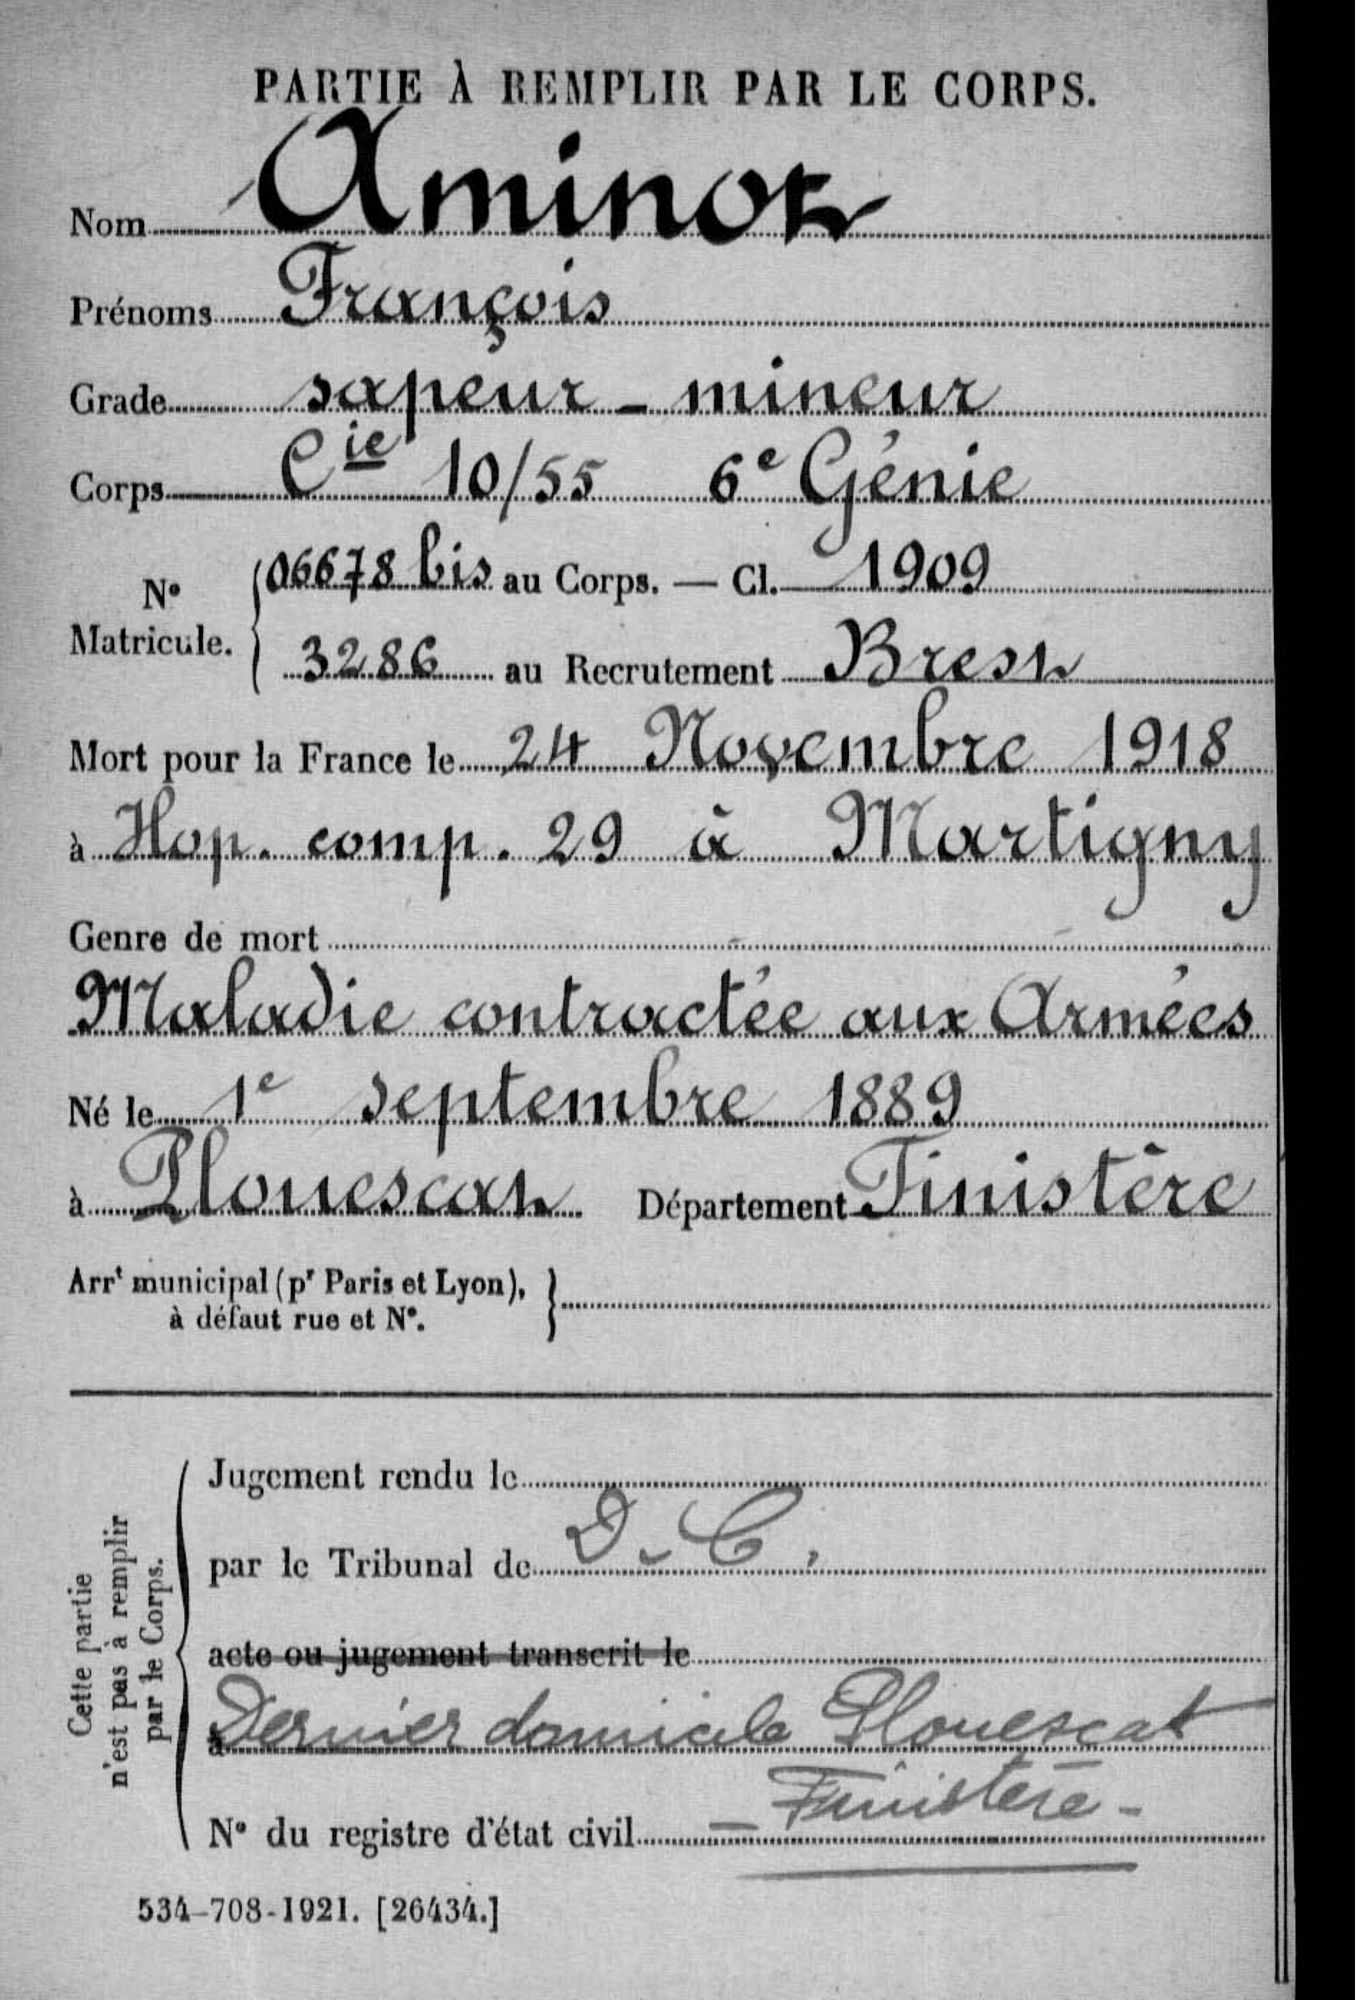 PARTIE À REMPLIR PAR LE CORPS.
Nom Aminot
Prénoms François
Grade sapeur - mineur
Corps Cie 10/55 6e Génie
No Matricule. { 06678 bis au Corps. — Cl. 1909
3286 au Recrutement Brest
Mort pour la France le 24 Novembre 1918
à Hop. comp. 29 à Martigny
Genre de mort
Maladie contractée aux Armées
Né le 1e septembre 1889
à Plouescat Département Finistère
Arrt municipal (pr Paris et Lyon), }
à défaut rue et No.
Cette partie
n'est pas à remplir
par le Corps.
Jugement rendu le
par le Tribunal de D. C.
acte ou jugement transcrit le
à Dernier domicile Plouescat
Finistère -
No du registre d'état civil
534-708-1921. [26434.]